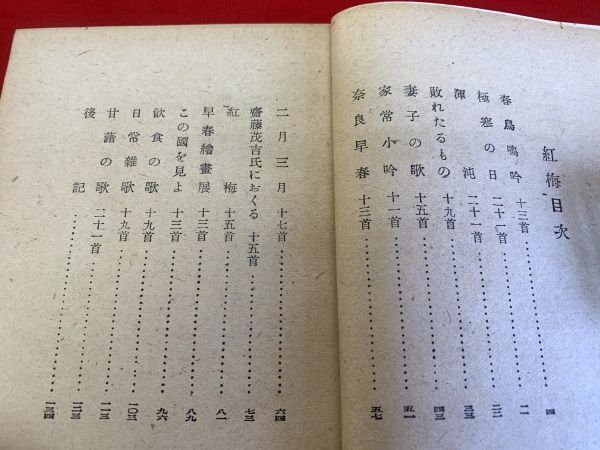 紅梅目次
春鳥鳴吟 十三首 四
極寒の日 二十一首 一一
渾沌 二十一首 二二
敗れたるもの 十九首 三三
妻子の歌 十五首 四三
家常小吟 十一首 五一
奈良早春 十三首 五七
二月三月 十七首 六四
齋藤茂吉氏におくる 十五首 七三
紅梅 十五首 八一
早春繪畫展 十三首 八九
この國を見よ 十三首 九六
飮食の歌 十九首 一〇三
日常雜歌 十九首 一一三
甘藷の歌 二十一首 一二三
後記 一三四